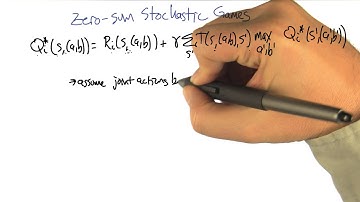 Zero-Sum Stochastic Games
Qᵢ*(s,(a,b)) = Rᵢ(s,(a,b)) + γ Σ T(s,(a,b),s') max Qᵢ*(s',(a',b'))
s' a',b'
→ assume joint actions b